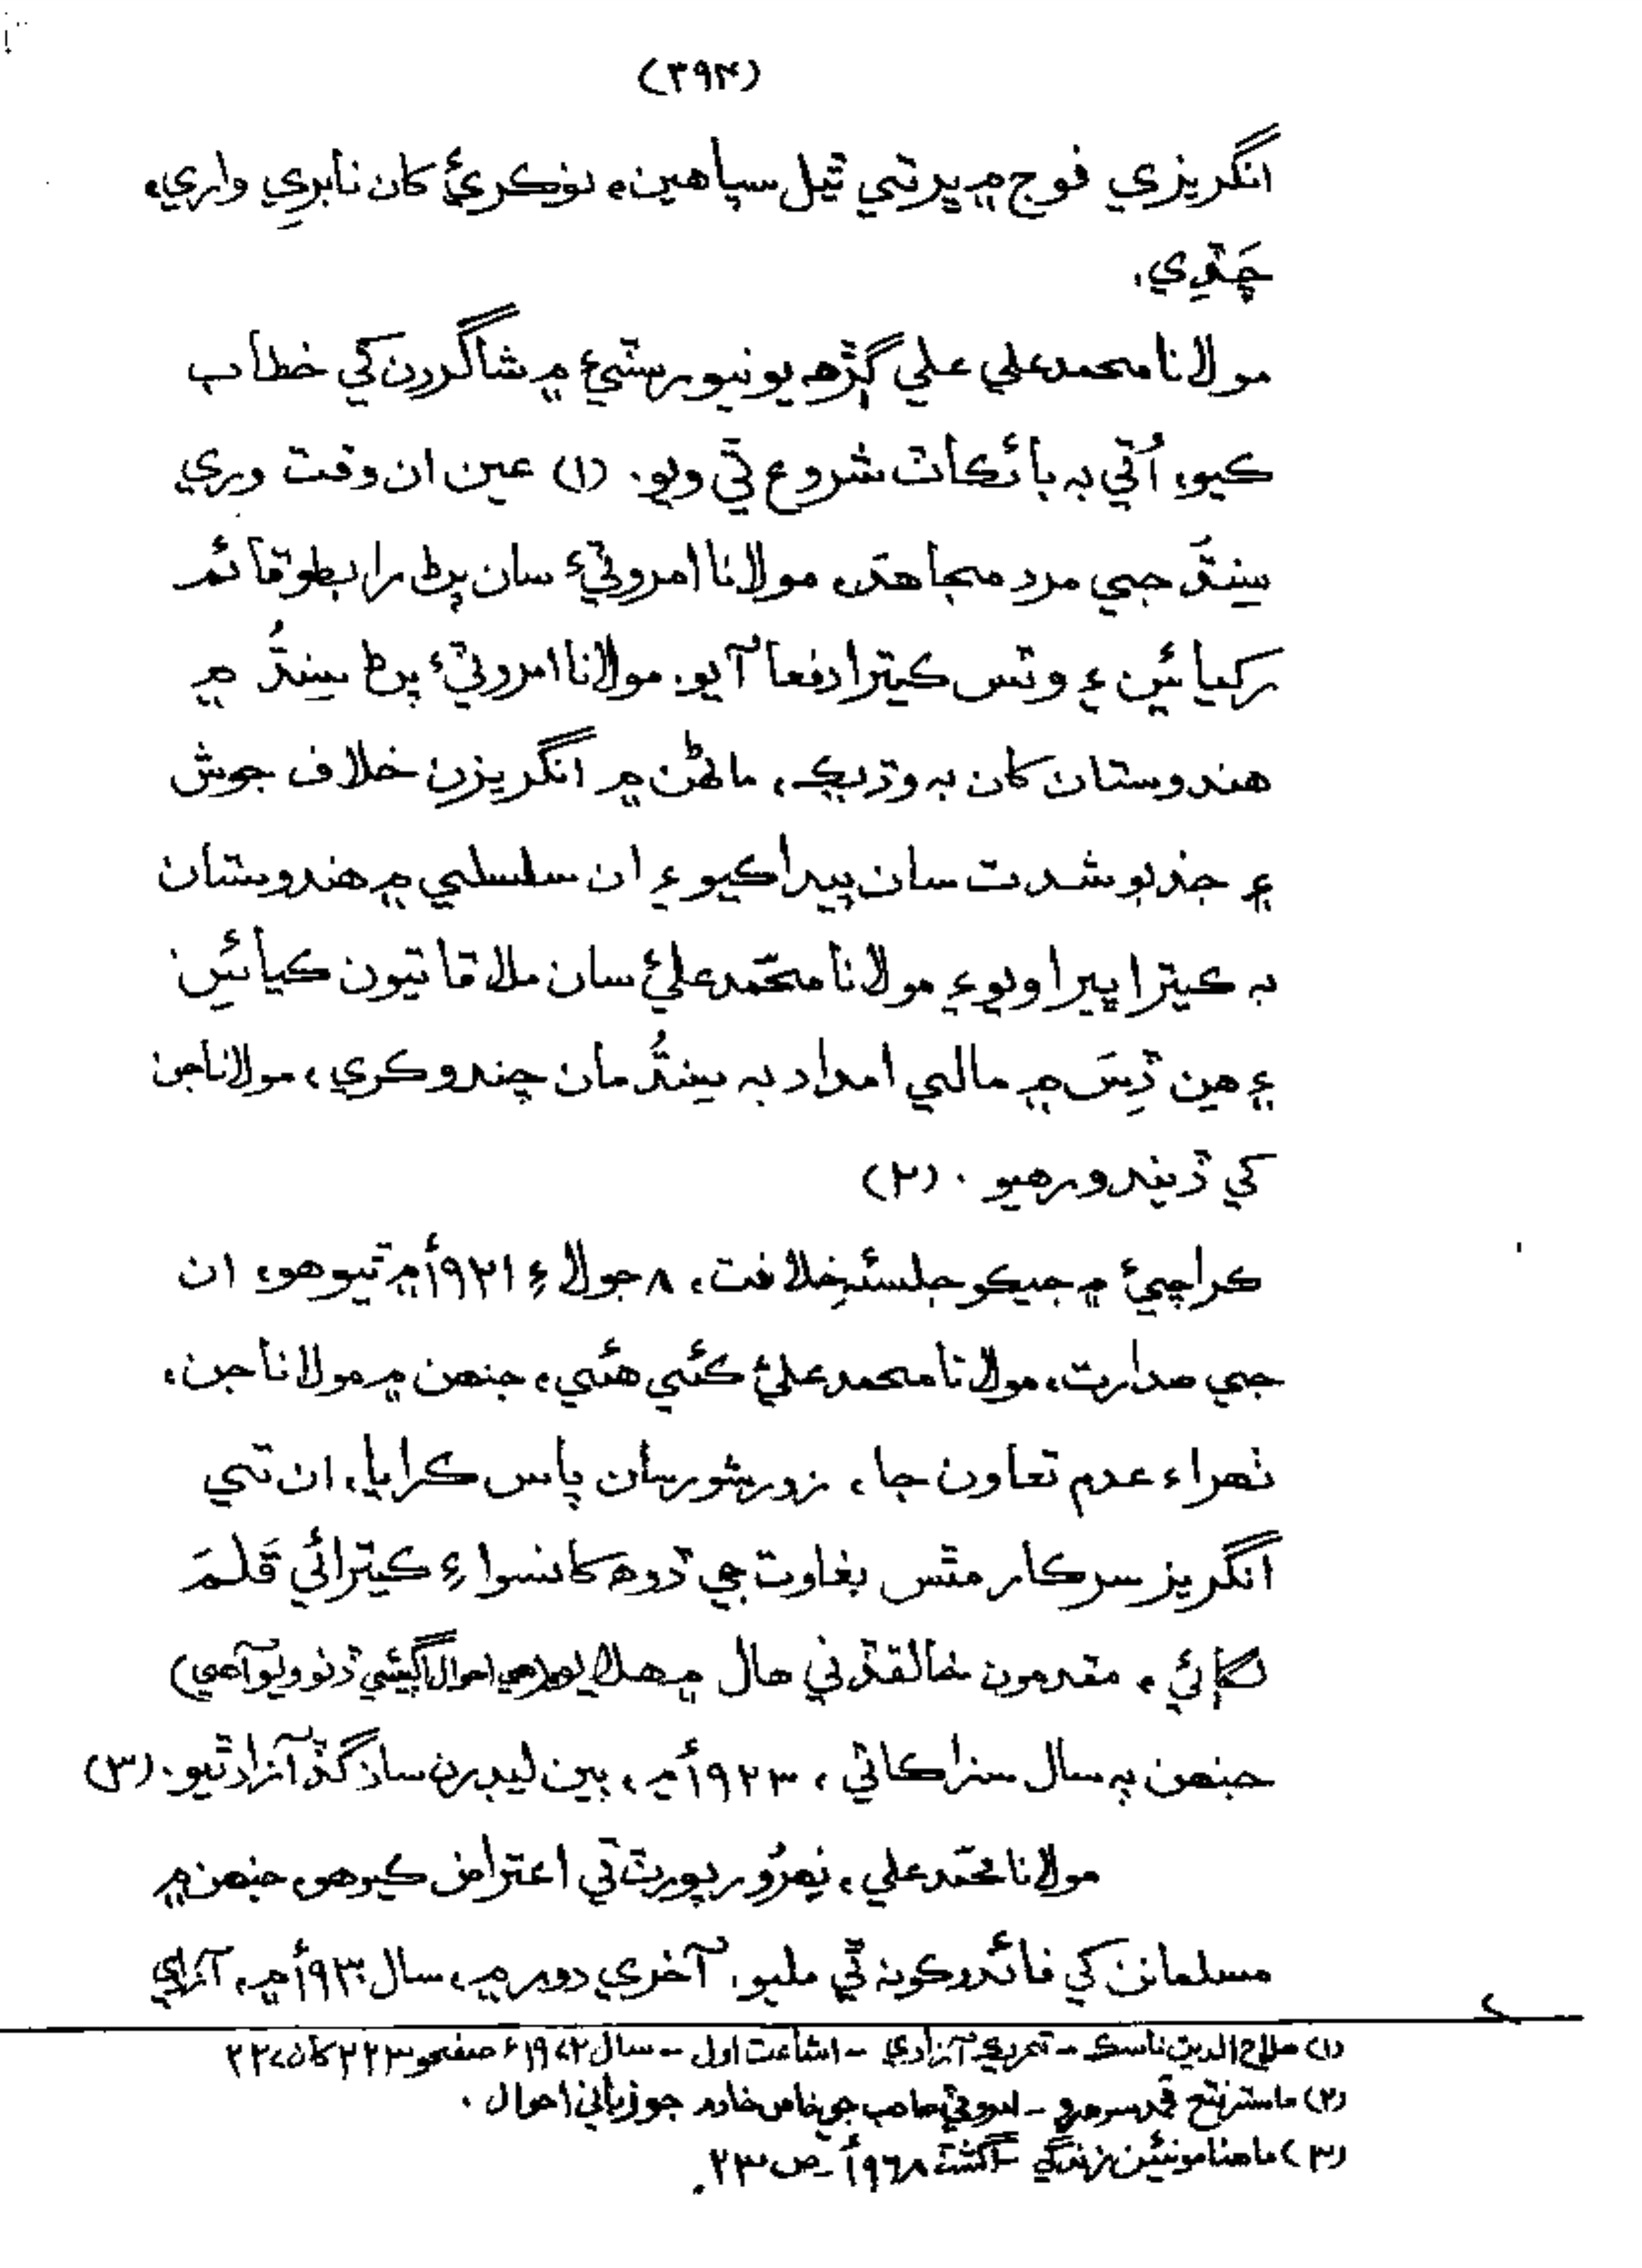 (۳۹۴)
انگريزي فوج ۾ ڀرتي ٿيل سپاهين، نوڪريءَ کان نابري واري،
ڇَڏي.
مولانا محمد علي علي ڳڙهه يونيورسٽيءَ ۾ شاگردن کي خطاب
ڪيو، اُتي به بائڪاٽ شروع ٿي ويو. (۱) عين ان وقت وري
سنڌَ جي مرد مجاهد، مولانا امروٽيءَ سان پڻ رابطو قائم
رکيائين ۽ وٽس ڪيترا دفعا آيو. مولانا امروٽيءَ پڻ سنڌُ ۾
هندوستان کان به وڌيڪ، ماڻهن ۾ انگريزن خلاف جوش
۽ جذبو شدت سان پيدا ڪيو ۽ ان سلسلي ۾ هندوستان
به ڪيترا ڀيرا ويو ۽ مولانا محمّد عليءَ سان ملاقاتيون ڪيائين
۽ هن ڏِسَ ۾ مالي امداد به سنڌُ مان چندو ڪري، مولانا جن
کي ڏيندو رهيو. (۲)
ڪراچيءَ ۾ جيڪو جلسئہ خلافت، ۸ جولاءِ ۱۹۲۱ع ۾ ٿيو هو، ان
جي صدارت، مولانا محمد عليءَ ڪئي هئي، جنهن ۾ مولانا جن،
ٺهراء عدم تعاون جا، زور شور سان پاس ڪرايا، ان تي
انگريز سرڪار مٿس بغاوت جي ڏوهه کانسواءِ ڪيترائي قَلمَ
لڳائي، مقدمون خالقڏني هال ۾ هلايو (هن جي احوال اڳيئي ڏنو ويو آهي)
جنهن به سال سزا کاٽي، ۱۹۲۳ع ۾، ٻين ليڊرن ساڻ گڏ آزاد ٿيو. (۳)
مولانا محمّد علي، نهرُو رپورٽ تي اعتراض ڪيو هو، جنهن ۾
مسلمانن کي فائدو ڪونه ٿي مليو. آخري دور ۾، سال ۱۹۳۰ع ۾، آزادي
(۱) صلاح الدين ناسڪ - تحريڪ آزادي - اشاعت اول - سال ۱۹۷۲ء صفحو ۲۲۳ کان ۲۲۵
(۲) ماستر فتح محمد سومرو - امروٽي صاحب جي خاص خادم جو زباني احوال.
(۳) ماهنامو نئين زندگي - آگسٽ ۱۹۶۸ع - ص ۲۳.